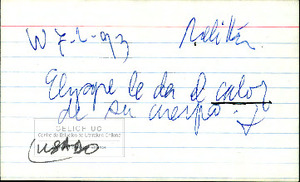 W 7-2-93
El yogue le da el calor
de su cuerpo.
CELICH UC
Centro de Estudios de Literatura Chilena
USADO